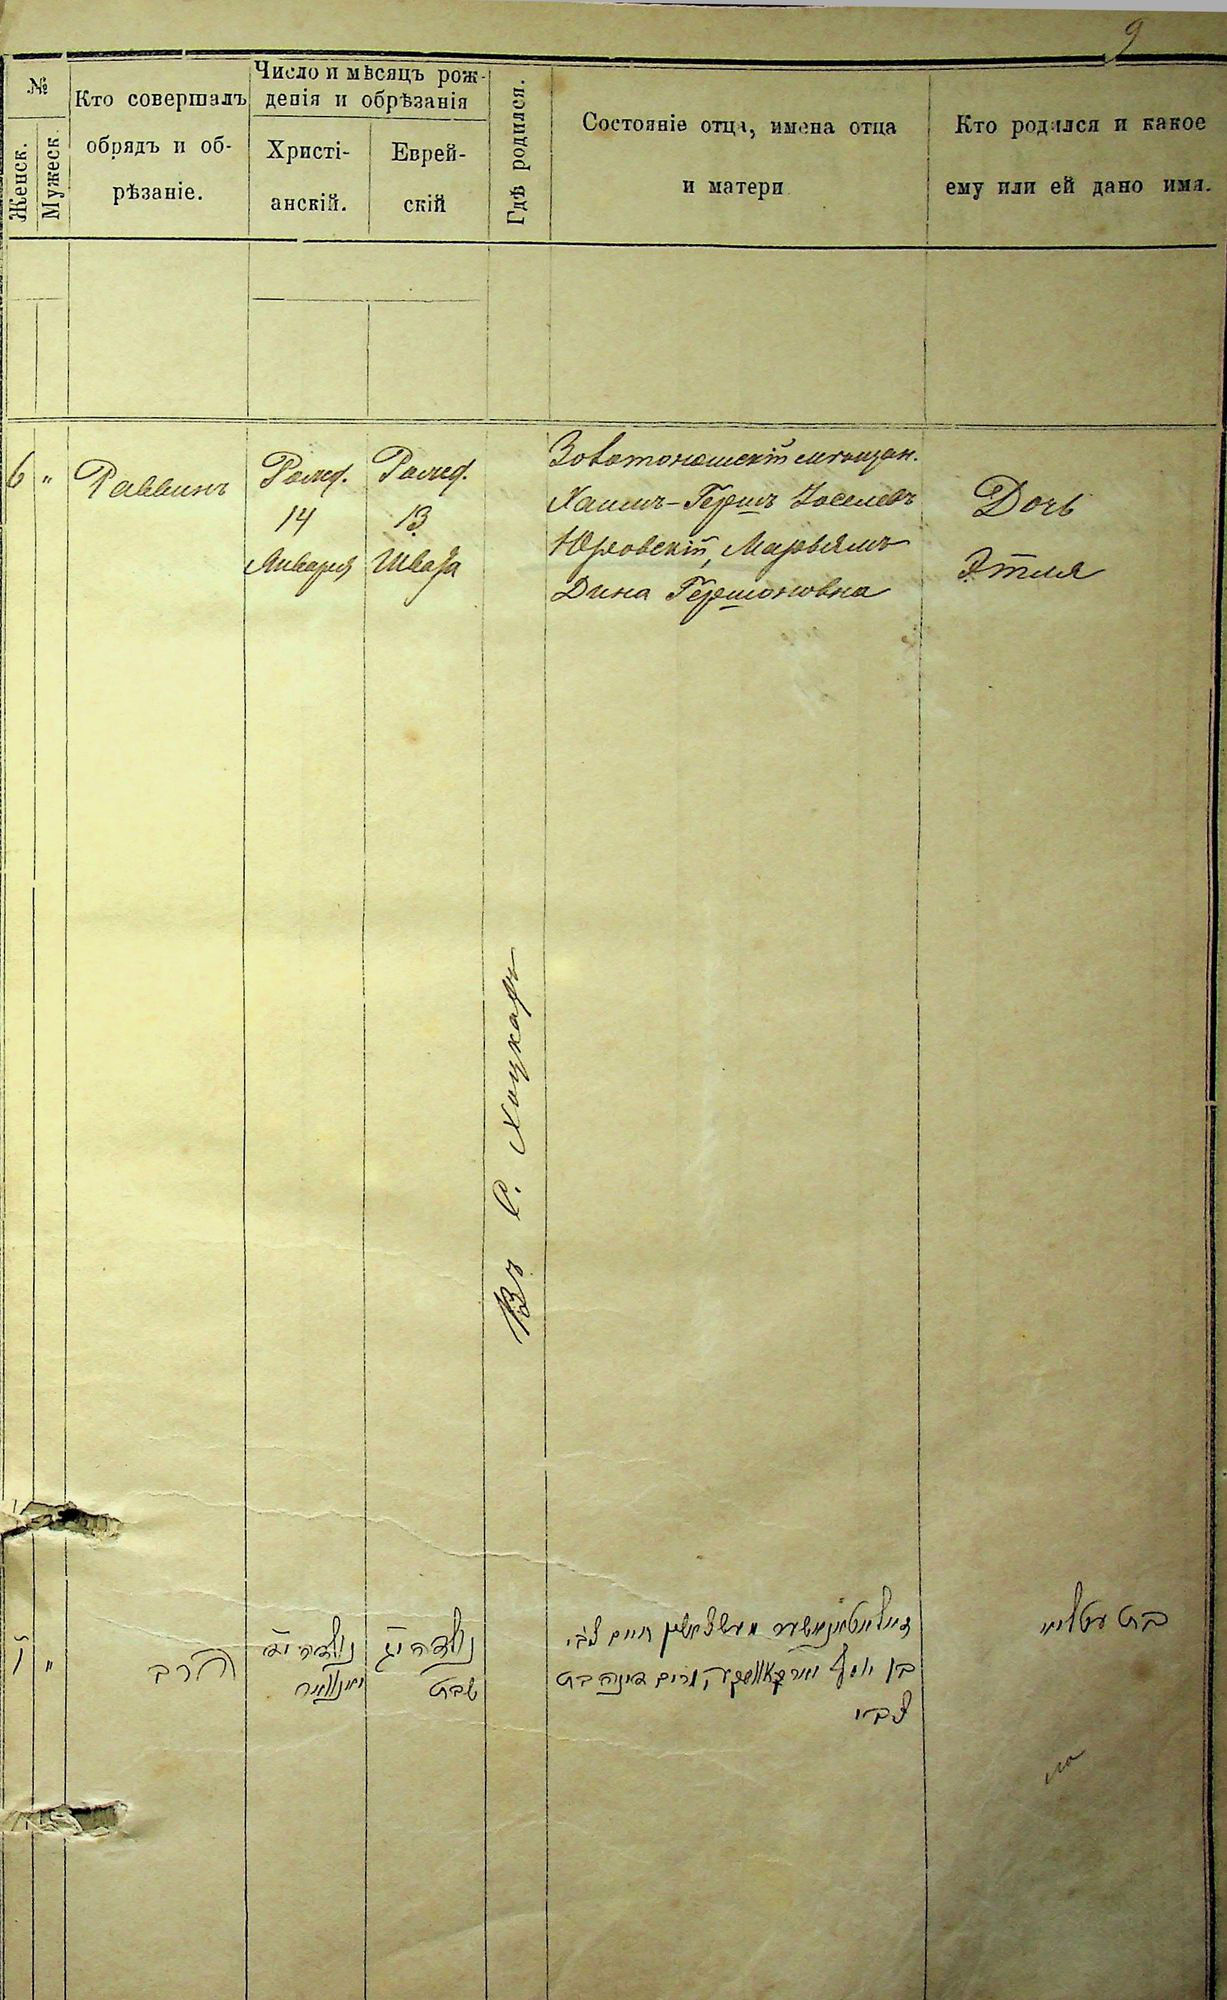 9
№
Женск.
Мужеск.
Кто совершалъ
обрядъ и об-
рѣзаніе.
Число и мѣсяцъ рож-
денія и обрѣзанія
Христі-
анскій.
Еврей-
скій
Гдѣ родился.
Состояніе отца, имена отца
и матери
Кто родился и какое
ему или ей дано имя.
6 "
Раввинъ
Рожд.
14
Января
Рожд.
13
Швата
Въ с. Хоцкахъ
Золотоношскій мѣщан.
Хаимъ-Гершъ Іоселевъ
Юрловскій, Марьямъ
Дина Гершоновна
Дочь
Этля
ו "
הרב
נולדה
נולדה יג
שבט
חיים צבי
בן יוסף מרים דינה בת
בת